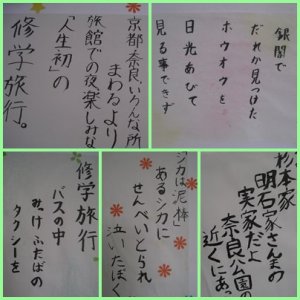 京都奈良いろんな所
まわるより
旅館での夜楽しみな
「人生初」の
修学旅行。
銀閣で
だれか見つけた
ホウオウを
日光あびて
見る事できず
修学旅行
バスの中
みつけふたばの
タクシーを
「シカは泥棒」
あるシカに
せんべいとられ
泣いたぼく
杉本家
明石家さんまの
実家だよ
奈良公園の
近くにあ